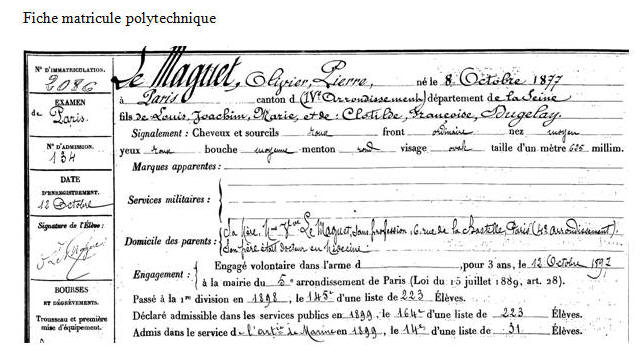 Fiche matricule polytechnique
N° D'IMMATRICULATION.
2086
EXAMEN
de Paris.
N° D'ADMISSION.
134
DATE
D'ENREGISTREMENT.
12 Octobre
Signature de l'Élève :
BOURSES
ET DÉGRÈVEMENTS.
Trousseau et première
mise d'équipement.
Le Maguet, Olivier, Pierre, né le 8 Octobre 1877
à Paris canton d (IVe Arrondissement) département de la Seine
fils de Louis, Joachim, Marie, et de : Clotilde, Françoise, Dugelay.
Signalement : Cheveux et sourcils roux front ordinaire nez moyen
yeux roux bouche moyenne menton rond visage ovale taille d'un mètre 625 millim.
Marques apparentes :
Services militaires :
Domicile des parents :
Sa mère, Mme Vve Le Maguet, sans profession, 6 rue de la Bastille, Paris (4e arrondissement).
Son père était docteur en médecine.
Engagement :
Engagé volontaire dans l'arme d , pour 3 ans, le 12 Octobre 1897
à la mairie du 5e arrondissement de Paris (Loi du 15 juillet 1889, art. 28).
Passé à la 1re division en 1898, le 145e d'une liste de 223 Élèves.
Déclaré admissible dans les services publics en 1899, le 164e d'une liste de 223 Élèves.
Admis dans le service de l'artie de Marine en 1899, le 14e d'une liste de 31 Élèves.